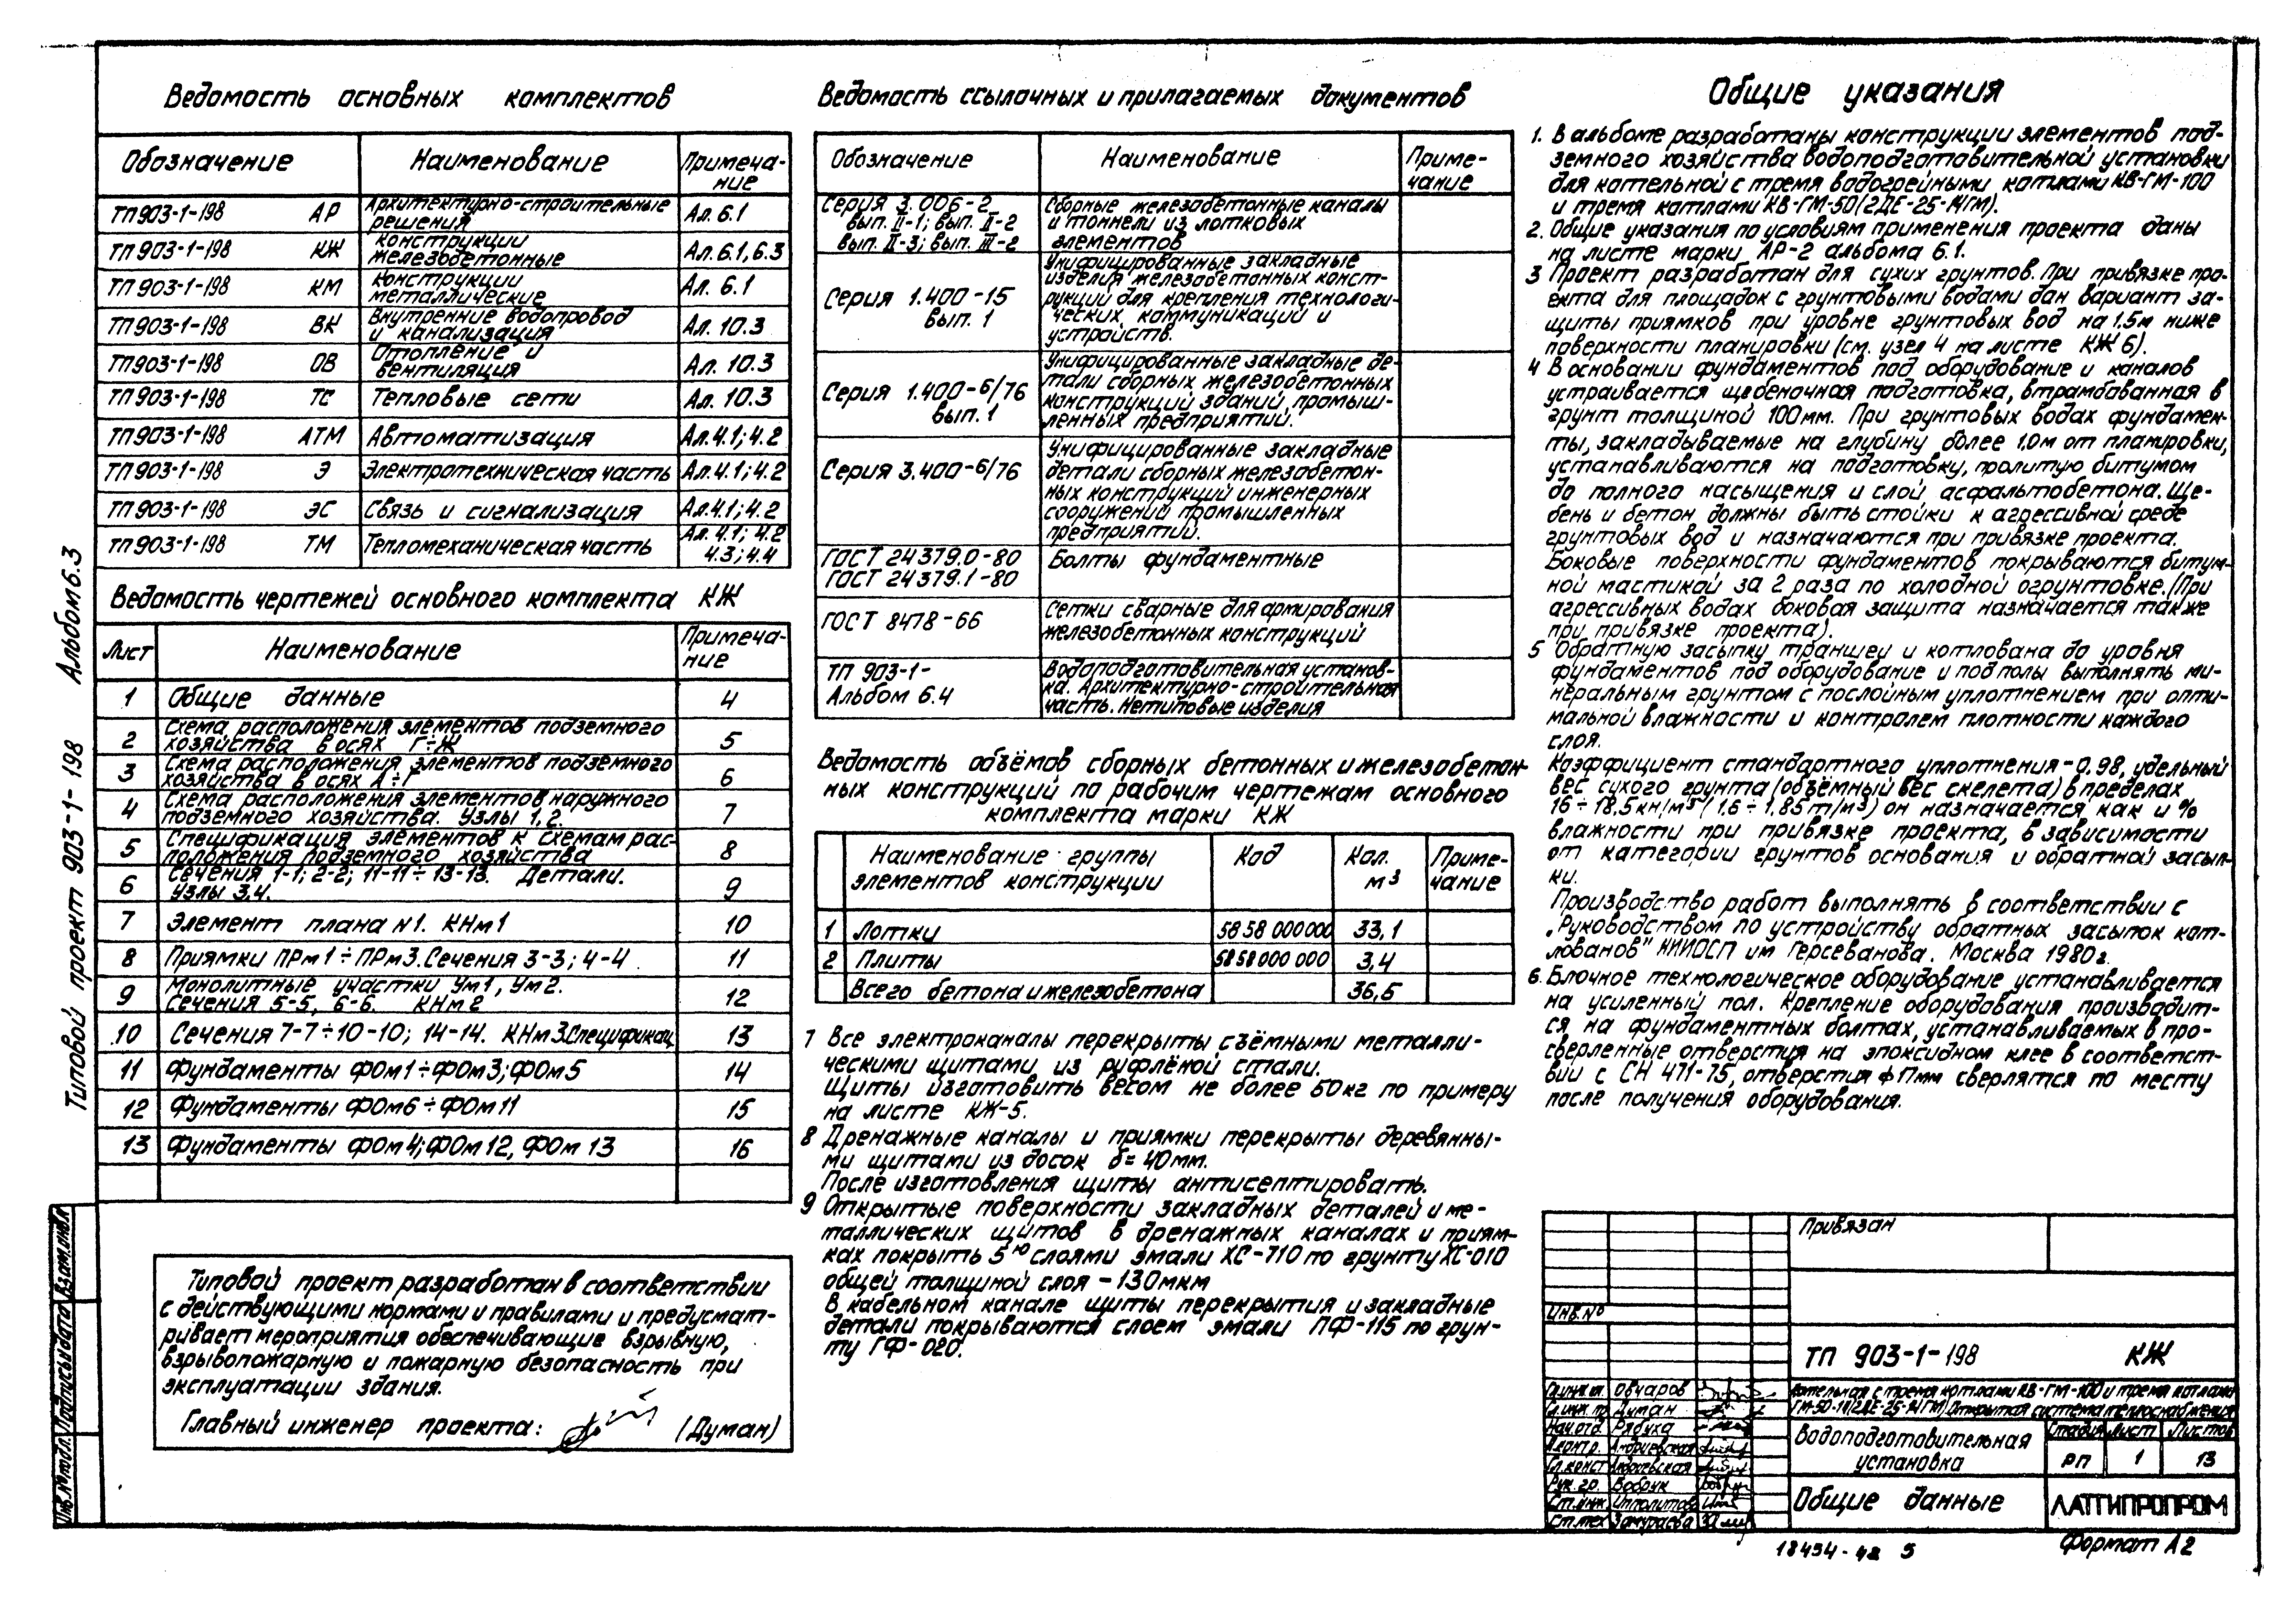 Типовой проект 903-1-198 Альбом 6.3
Ведомость основных комплектов
Обозначение Наименование Примеча-
ние
ТП 903-1-198 АР Архитектурно-строительные
решения Ал. 6.1
ТП 903-1-198 КЖ Конструкции
железобетонные Ал. 6.1, 6.3
ТП 903-1-198 КМ Конструкции
металлические Ал. 6.1
ТП 903-1-198 ВК Внутренние водопровод
и канализация Ал. 10.3
ТП 903-1-198 ОВ Отопление и
вентиляция Ал. 10.3
ТП 903-1-198 ТС Тепловые сети Ал. 10.3
ТП 903-1-198 АТМ Автоматизация Ал. 4.1; 4.2
ТП 903-1-198 Э Электротехническая часть Ал. 4.1; 4.2
ТП 903-1-198 ЭС Связь и сигнализация Ал. 4.1; 4.2
ТП 903-1-198 ТМ Тепломеханическая часть Ал. 4.1; 4.2
4.3; 4.4
Ведомость чертежей основного комплекта КЖ
Лист Наименование Примеча-
ние
1 Общие данные 4
2 Схема расположения элементов подземного
хозяйства в осях Г÷Ж 5
3 Схема расположения элементов подземного
хозяйства в осях А÷Г 6
4 Схема расположения элементов наружного
подземного хозяйства. Узлы 1, 2. 7
5 Спецификация элементов к схемам рас-
положения подземного хозяйства 8
6 Сечения 1-1; 2-2; 11-11÷13-13. Детали.
Узлы 3,4. 9
7 Элемент плана N1. КНм1 10
8 Приямки ПРм1÷ПРм3. Сечения 3-3; 4-4 11
9 Монолитные участки Ум1, Ум2.
Сечения 5-5, 6-6. КНм2 12
10 Сечения 7-7÷10-10; 14-14. КНм3. Спецификац 13
11 Фундаменты ФОм1÷ФОм3; ФОм5 14
12 Фундаменты ФОм6÷ФОм11 15
13 Фундаменты ФОм4; ФОм12, ФОм 13 16
Типовой проект разработан в соответствии
с действующими нормами и правилами и предусмат-
ривает мероприятия обеспечивающие взрывную,
взрывопожарную и пожарную безопасность при
эксплуатации здания.
Главный инженер проекта: (Думан)
Инв. № подл. Подпись и дата Взам. инв. №
Ведомость ссылочных и прилагаемых документов
Обозначение Наименование Приме-
чание
Серия 3.006-2
вып. II-1; вып. II-2
вып. II-3; вып. III-2
Сборные железобетонные каналы
и тоннели из лотковых
элементов
Серия 1.400-15
вып. 1
Унифицированные закладные
изделия железобетонных конст-
рукций для крепления технологи-
ческих коммуникаций и
устройств.
Серия 1.400-6/76
вып. 1
Унифицированные закладные де-
тали сборных железобетонных
конструкций зданий промыш-
ленных предприятий.
Серия 3.400-6/76
Унифицированные закладные
детали сборных железобетон-
ных конструкций инженерных
сооружений промышленных
предприятий.
ГОСТ 24379.0-80
ГОСТ 24379.1-80
Болты фундаментные
ГОСТ 8478-66
Сетки сварные для армирования
железобетонных конструкций
ТП 903-1-
Альбом 6.4
Водоподготовительная установ-
ка. Архитектурно-строительная
часть. Нетиповые изделия
Ведомость объёмов сборных бетонных и железобетон-
ных конструкций по рабочим чертежам основного
комплекта марки КЖ
Наименование группы
элементов конструкции Код Кол.
м³ Приме-
чание
1 Лотки 5858 000000 33,1
2 Плиты 5858 000 000 3,4
Всего бетона и железобетона 36,5
7 Все электроканалы перекрыты съёмными металли-
ческими щитами из руфлёной стали.
Щиты изготовить весом не более 50кг по примеру
на листе КЖ-5.
8 Дренажные каналы и приямки перекрыты деревянны-
ми щитами из досок δ=40мм.
После изготовления щиты антисептировать.
9 Открытые поверхности закладных деталей и ме-
таллических щитов в дренажных каналах и приям-
ках покрыть 5ю слоями эмали ХС-710 по грунту ХС-010
общей толщиной слоя - 130мкм
В кабельном канале щиты перекрытия и закладные
детали покрываются слоем эмали ПФ-115 по грун-
ту ГФ-020.
Общие указания
1. В альбоме разработаны конструкции элементов под-
земного хозяйства водоподготовительной установки
для котельной с тремя водогрейными котлами КВ-ГМ-100
и тремя котлами КВ-ГМ-50(2ДЕ-25-14ГМ).
2. Общие указания по условиям применения проекта даны
на листе марки АР-2 альбома 6.1.
3 Проект разработан для сухих грунтов. При привязке про-
екта для площадок с грунтовыми водами дан вариант за-
щиты приямков при уровне грунтовых вод на 1.5м ниже
поверхности планировки (см. узел 4 на листе КЖ 6).
4 В основании фундаментов под оборудование и каналов
устраивается щебеночная подготовка, втрамбованная в
грунт толщиной 100мм. При грунтовых водах фундамен-
ты, закладываемые на глубину более 1.0м от планировки,
устанавливаются на подготовку, пролитую битумом
до полного насыщения и слой асфальтобетона. Ще-
бень и бетон должны быть стойки к агрессивной среде
грунтовых вод и назначаются при привязке проекта.
Боковые поверхности фундаментов покрываются битум-
ной мастикой за 2 раза по холодной огрунтовке. (При
агрессивных водах боковая защита назначается также
при привязке проекта).
5 Обратную засыпку траншеи и котлована до уровня
фундаментов под оборудование и под полы выполнять ми-
неральным грунтом с послойным уплотнением при опти-
мальной влажности и контролем плотности каждого
слоя.
Коэффициент стандартного уплотнения-0,98, удельный
вес сухого грунта (объёмный вес скелета) в пределах
16÷18,5кн/м³ (1,6÷1,85т/м³) он назначается как и %
влажности при привязке проекта, в зависимости
от категории грунтов основания и обратной засып-
ки.
Производство работ выполнять в соответствии с
„Руководством по устройству обратных засыпок кот-
лованов" НИИОСП им Герсеванова. Москва 1980г.
6. Блочное технологическое оборудование устанавливается
на усиленный пол. Крепление оборудования производит-
ся на фундаментных болтах, устанавливаемых в про-
сверленные отверстия на эпоксидном клее в соответст-
вии с СН 471-75, отверстия ф17мм сверлятся по месту
после получения оборудования.
Привязан
Инв. №
ТП 903-1-198 КЖ
Котельная с тремя котлами КВ-ГМ-100 и тремя котлами
Открытая система теплоснабжения
Гл.инж.ин. Овчаров
Гл.инж.пр Думан
Нач.отд. Рябуха
Н.контр. Андриевская
Гл.конст Андриевская
Рук.гр. Бобрик
Ст.инж. Ипполитова
Ст.тех Замураева
Водоподготовительная
установка
Стадия Лист Листов
РП 1 13
Общие данные
ЛАТГИПРОПРОМ
18454-42 5
Формат А2